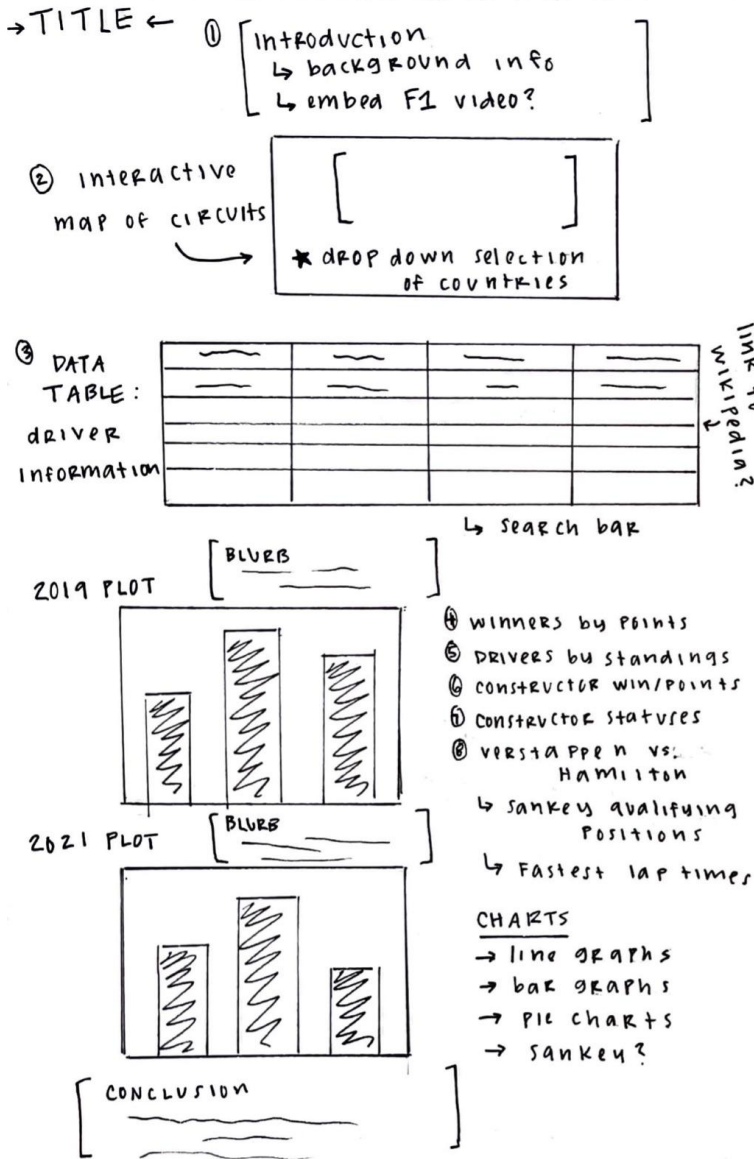 → TITLE ←
① Introduction
↳ background info
↳ embed F1 video?
② interactive
map of circuits
★ drop down selection
of countries
③ DATA
TABLE:
driver
information
link to
wikipedia?
↳ search bar
BLURB
2019 PLOT
④ winners by points
⑤ Drivers by standings
⑥ constructor win/points
⑦ constructor statuses
⑧ verstappen vs.
Hamilton
↳ sankey qualifying
positions
↳ Fastest lap times
2021 PLOT
BLURB
CHARTS
→ line graphs
→ bar graphs
→ pie charts
→ sankey?
CONCLUSION